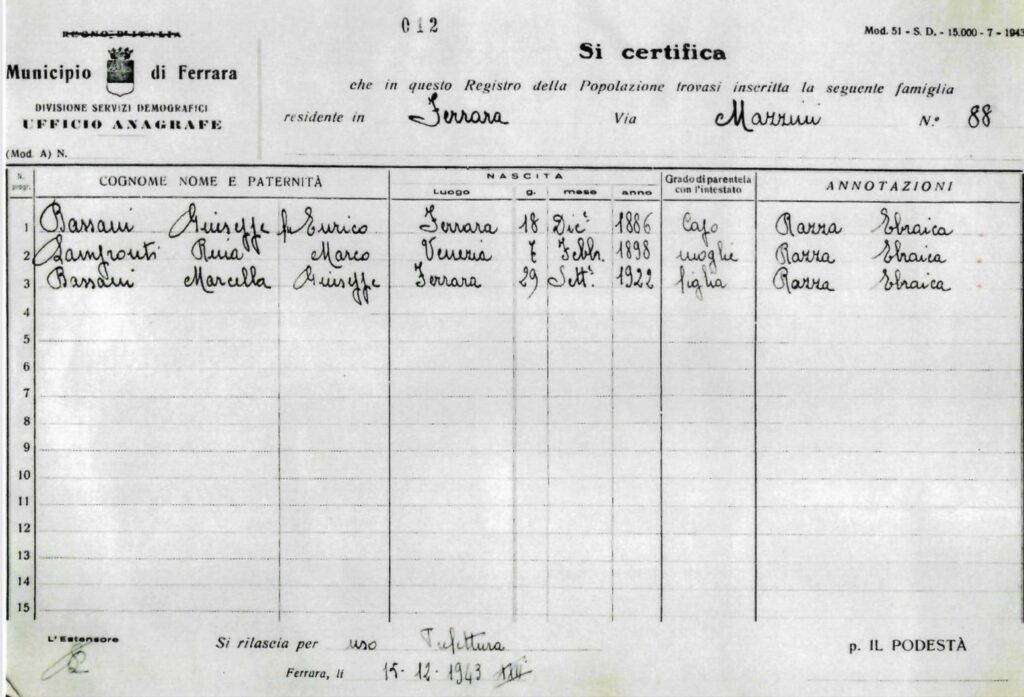 012
Mod. 51 - S. D. - 15.000 - 7 - 1943
REGNO D'ITALIA
Municipio di Ferrara
DIVISIONE SERVIZI DEMOGRAFICI
UFFICIO ANAGRAFE
(Mod A) N.
Si certifica
che in questo Registro della Popolazione trovasi inscritta la seguente famiglia
residente in Ferrara Via Mazzini N.º 88
N. progr. COGNOME NOME E PATERNITÀ NASCITA Grado di parentela con l'intestato ANNOTAZIONI
Luogo g. mese anno
1 Bassani Giuseppe fu Enrico Ferrara 18 Dic.e 1886 Capo Razza Ebraica
2 Lampronti Marco Venezia 7 Febbr. 1898 moglie Razza Ebraica
3 Bassani Marcella Giuseppe Ferrara 29 Sett.e 1922 figlia Razza Ebraica
4
5
6
7
8
9
10
11
12
13
14
15
L'Estensore
Si rilascia per uso Prefettura
p. IL PODESTÀ
Ferrara, li 15-12-1943